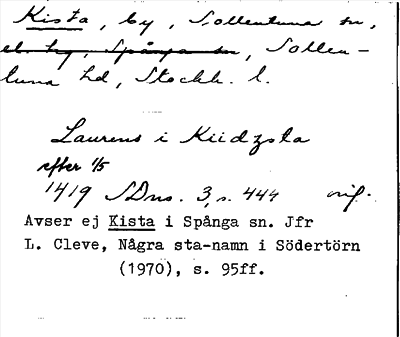 Kista, by, Sollentuna sn,
el. by, Spånga sn, Sollen-
tuna hd, Stockh. l.
Laurens i Kiidzsta
efter 1/5
1419 SDns. 3, s. 444 orig.
Avser ej Kista i Spånga sn. Jfr
L. Cleve, Några sta-namn i Södertörn
(1970), s. 95ff.